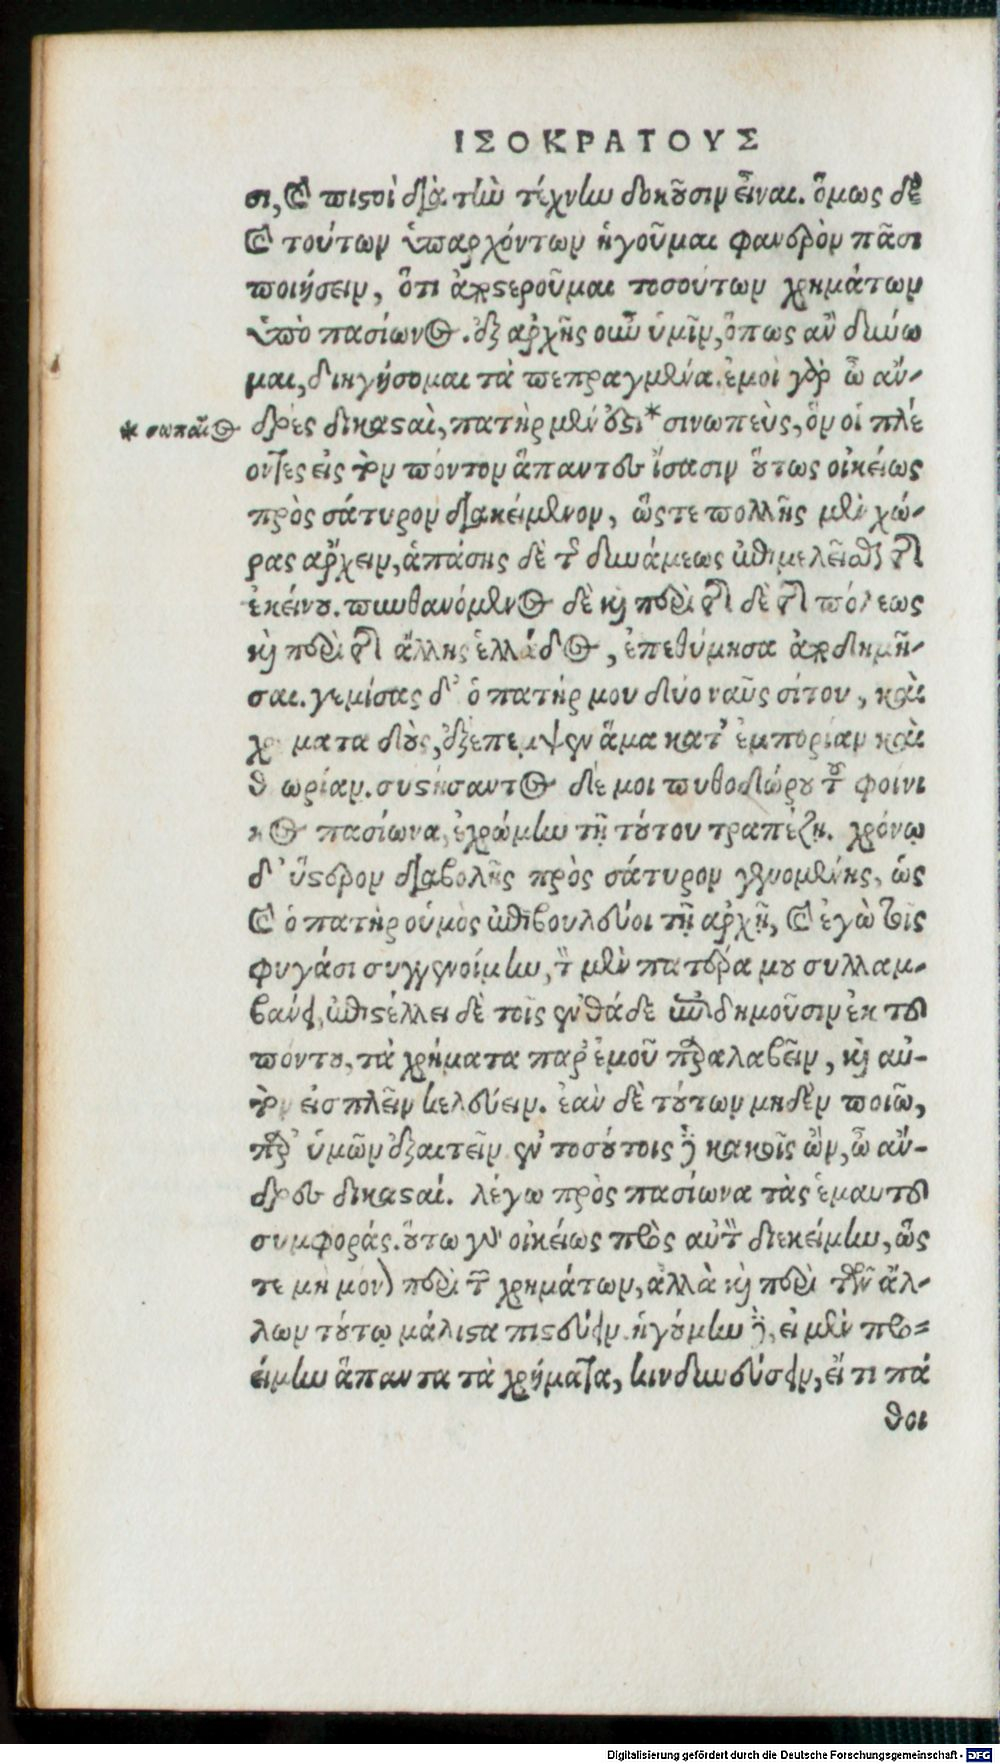 ΙΣΟΚΡΑΤΟΥΣ
σι, καὶ πιστοὶ διὰ τὴν τέχνην δοκοῦσιν εἶναι. ὅμως δὲ
καὶ τούτων ὑπαρχόντων ἡγοῦμαι φανερὸν πᾶσι
ποιήσειν, ὅτι ἀποστεροῦμαι τοσούτων χρημάτων
ὑπὸ πασίωνος. ἐξ ἀρχῆς οὖν ὑμῖν, ὅπως ἂν δύνω
μαι, διηγήσομαι τὰ πεπραγμένα. ἐμοὶ γὰρ ὦ ἄν-
δρες δικασταὶ, πατὴρ μέν ἐστι * σινωπεὺς, ὃν οἱ πλέ
* σωπαῖος
οντες εἰς τὸν πόντον ἅπαντες ἴσασιν οὕτως οἰκείως
πρὸς σάτυρον διακείμενον, ὥστε πολλῆς μὲν χώ-
ρας ἄρχειν, ἁπάσης δὲ τῆς δυνάμεως ἐπιμελεῖσθαι τῆς
ἐκείνου. πυνθανόμενος δὲ καὶ περὶ τῆς δὲ τῆς πόλεως
καὶ περὶ τῆς ἄλλης ἑλλάδος, ἐπεθύμησα ἀποδημῆ-
σαι. γεμίσας δ' ὁ πατήρ μου δύο ναῦς σίτου, καὶ
χρήματα δοὺς, ἐξέπεμψεν ἅμα κατ' ἐμπορίαν καὶ
θεωρίαν. συστήσαντος δέ μοι πυθοδώρου τοῦ φοίνι
κος πασίωνα, ἐχρώμην τῇ τούτου τραπέζῃ. χρόνῳ
δ' ὕστερον διαβολῆς πρὸς σάτυρον γενομένης, ὡς
καὶ ὁ πατὴρ οὑμὸς ἐπιβουλεύοι τῇ ἀρχῇ, καὶ ἐγὼ τοῖς
φυγάσι συγγενοίμην, τὸν μὲν πατέρα μου συλλαμ-
βάνει, ἐπιστέλλει δὲ τοῖς ἐνθάδε ἐπιδημοῦσιν ἐκ τοῦ
πόντου, τὰ χρήματα παρ' ἐμοῦ παραλαβεῖν, καὶ αὐ-
τὸν εἰσπλεῖν κελεύειν. ἐὰν δὲ τούτων μηδὲν ποιῶ,
παρ' ὑμῶν ἐξαιτεῖν. ἐν τοσούτοις δὲ κακοῖς ὢν, ὦ ἄν-
δρες δικασταί. λέγω πρὸς πασίωνα τὰς ἐμαυτοῦ
συμφοράς. οὕτω γὰρ οἰκείως πρὸς αὐτὸν διεκείμην, ὥς
τε μὴ μόνον περὶ τῶν χρημάτων, ἀλλὰ καὶ περὶ τῶν ἄλ-
λων τούτῳ μάλιστα πιστεύειν. ἡγούμην δὲ, εἰ μὲν προ-
είμην ἅπαντα τὰ χρήματα, κινδυνεύσειν, εἴ τι πά
θοι